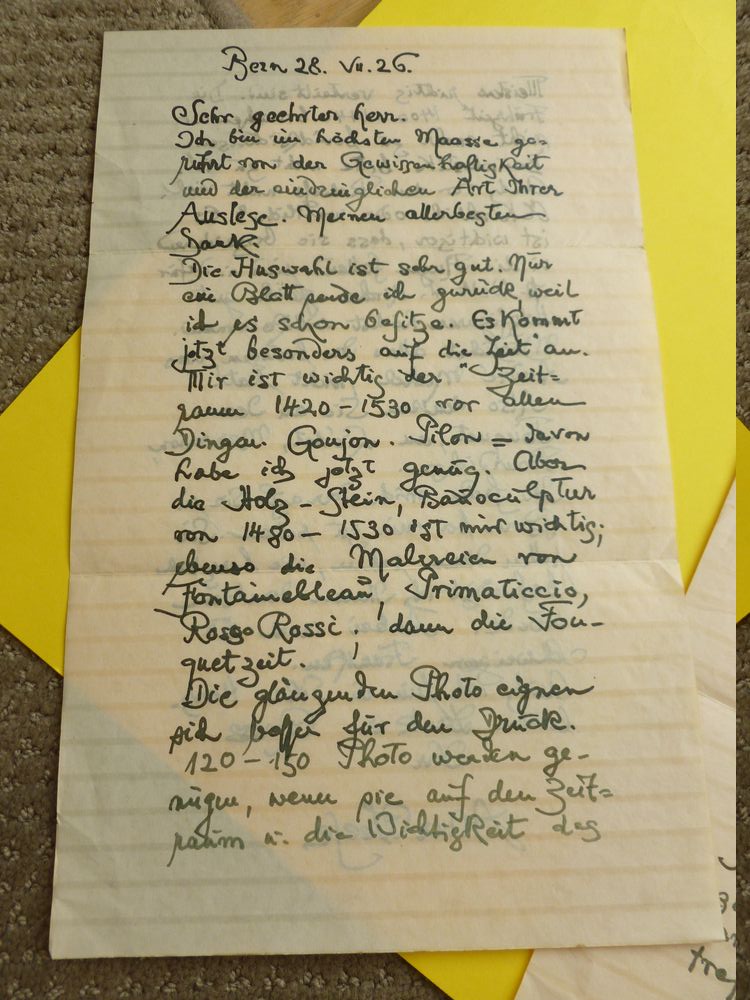 Bern 28. VII. 26.
Sehr geehrter Herr.
Ich bin im höchsten Maasse ge=
rührt von der Gewissenhaftigkeit
und der eindringlichen Art Ihrer
Auslese. Meinen allerbesten
Dank.
Die Auswahl ist sehr gut. Nur
ein Blatt sende ich zurück, weil
ich es schon besitze. Es kommt
jetzt besonders auf die Zeit an.
Mir ist wichtig der "Zeit=
raum 1420 – 1530 vor allen
Dingen. Goujon. Pilon = davon
habe ich jetzt genug. Aber
die Holz – Stein,
von 1480 – 1530 ist mir wichtig;
ebenso die Malereien von
Fontainebleau, Primaticcio,
Rosso Rossi; dann die Fou-
quetzeit.
Die glänzenden Photo eignen
sich besser für den Druck.
120 – 150 Photo werden ge-
nügen, wenn sie auf den Zeit=
raum u. die Wichtigkeit des
tre